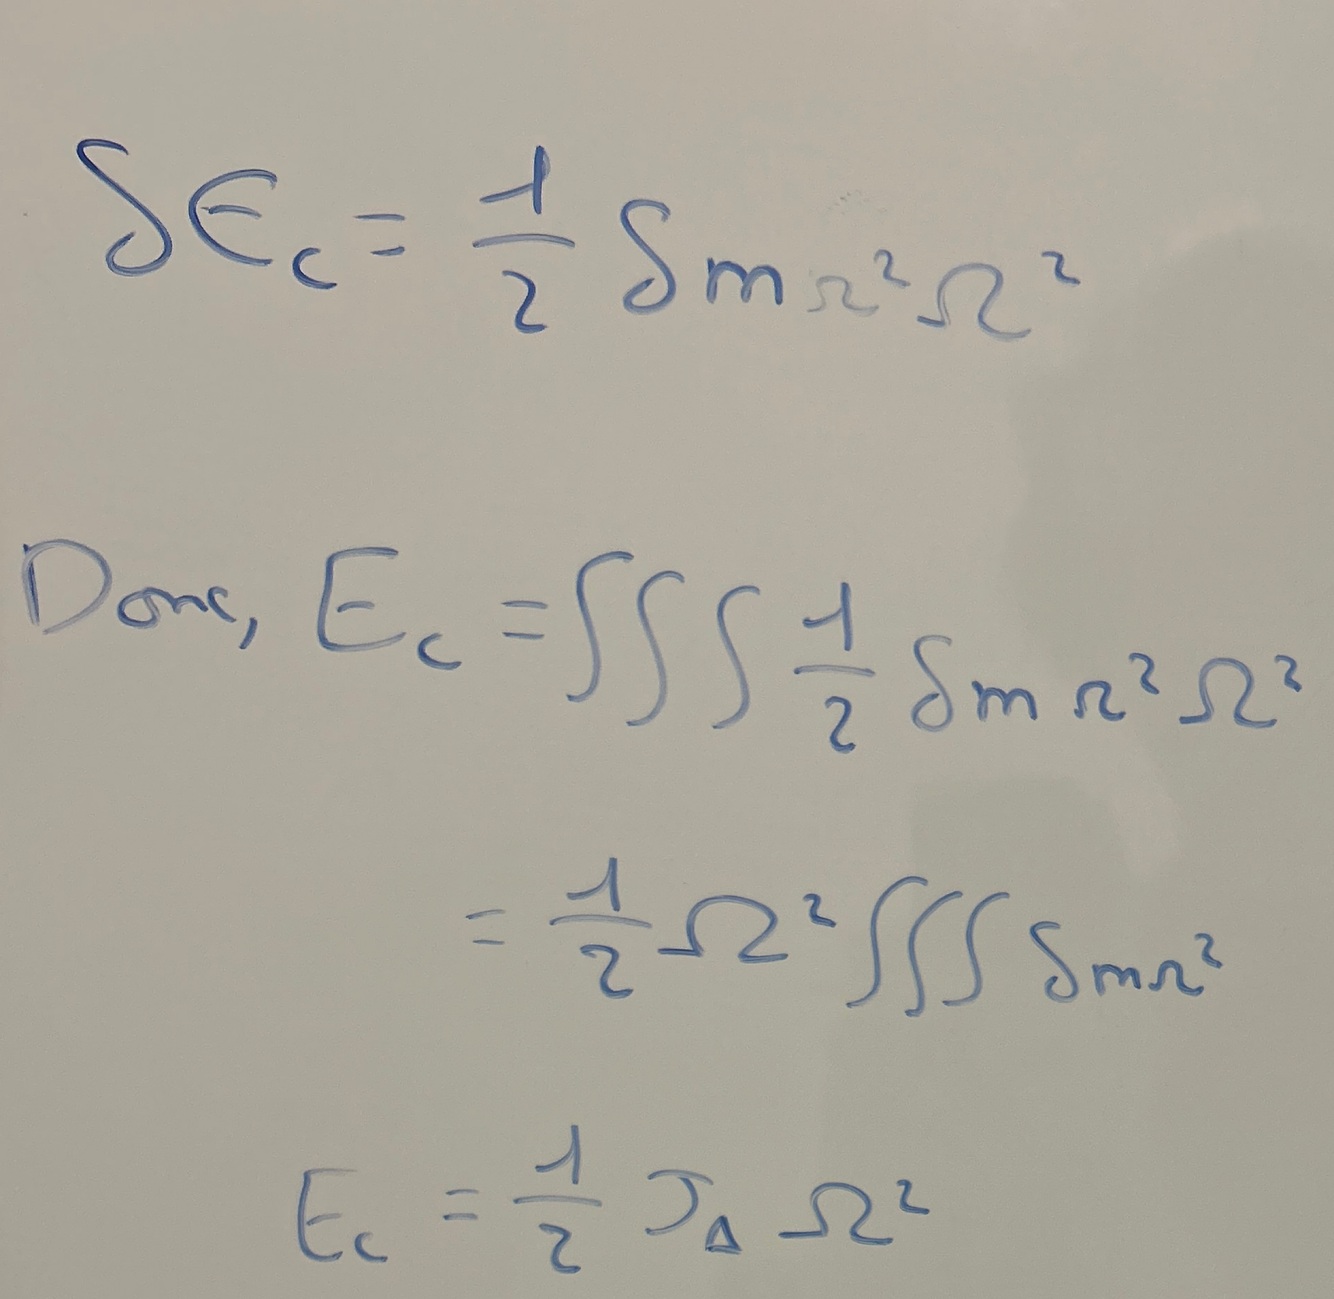 δE_c = 1/2 δm r² Ω²
Donc, E_c = ∫∫∫ 1/2 δm r² Ω²
= 1/2 Ω² ∫∫∫ δm r²
E_c = 1/2 J_Δ Ω²